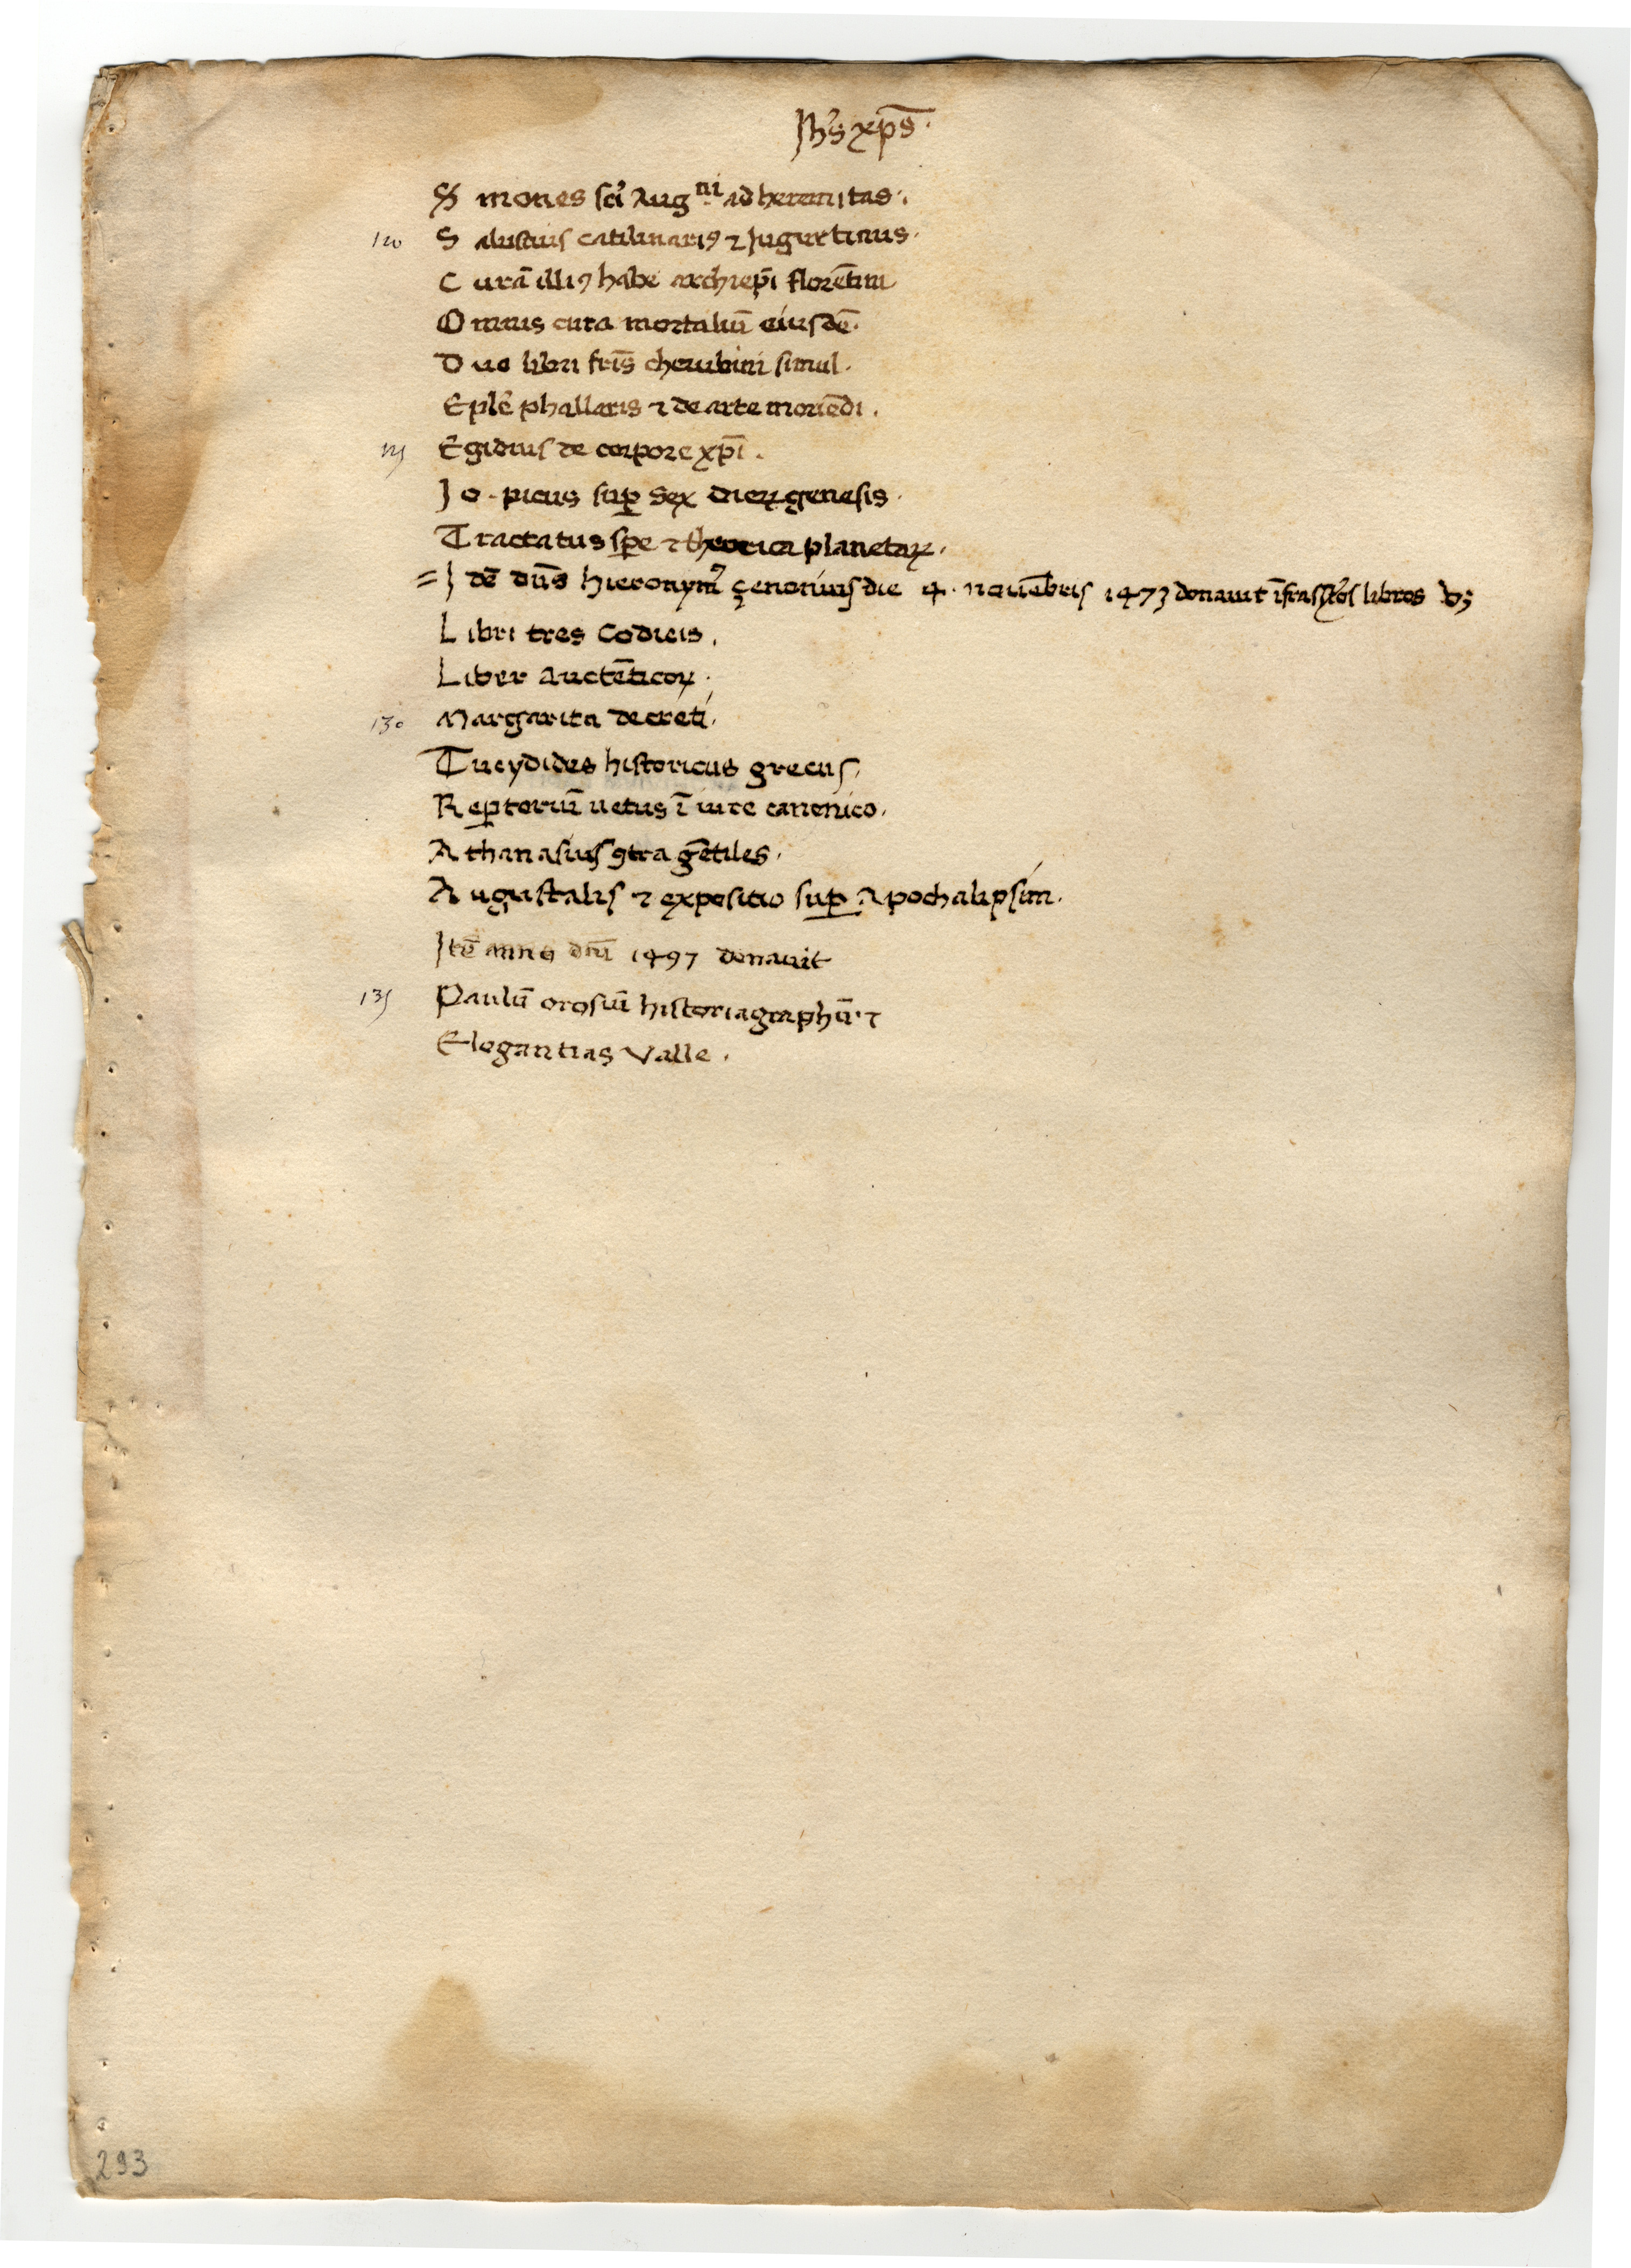 Jh's xp̄s.
S̕ mones sci̕ Augⁿⁱ ad heremitas.
120 S alustius catilinariꝰ ⁊ Jugurtinus.
C urā illiꝰ habe archiepī florētini
O mnis cura mortaliū eiusdē.
D uo libri fr̄is cherubini simul.
Epl̄e phallaris ⁊ de arte moriēdi.
125 Egidius de corpore xp̄i.
J o. picus suꝑ sex dieꝝ genesis.
Tractatus sꝑe ⁊ theorica planetaꝝ.
= J dē dn̄s hieronym̕ çenonius die 4. nouēbris 1473 donauit īfrasc̕tos libros vꝫ
L ibri tres Codicis.
Liber auctēticoꝝ.
130 Margarita decreti.
Tucydides historicus grecus,
R eꝑtoriū uetus ī iure canonico.
A thanasius ꝯtra gētiles.
A ugustalis ⁊ expositio suꝑ apochalipsim.
Jtē anno dn̄i 1497 donauit
135 Paulū orosiū historiagraphū. ⁊
Elegantias Valle.
293